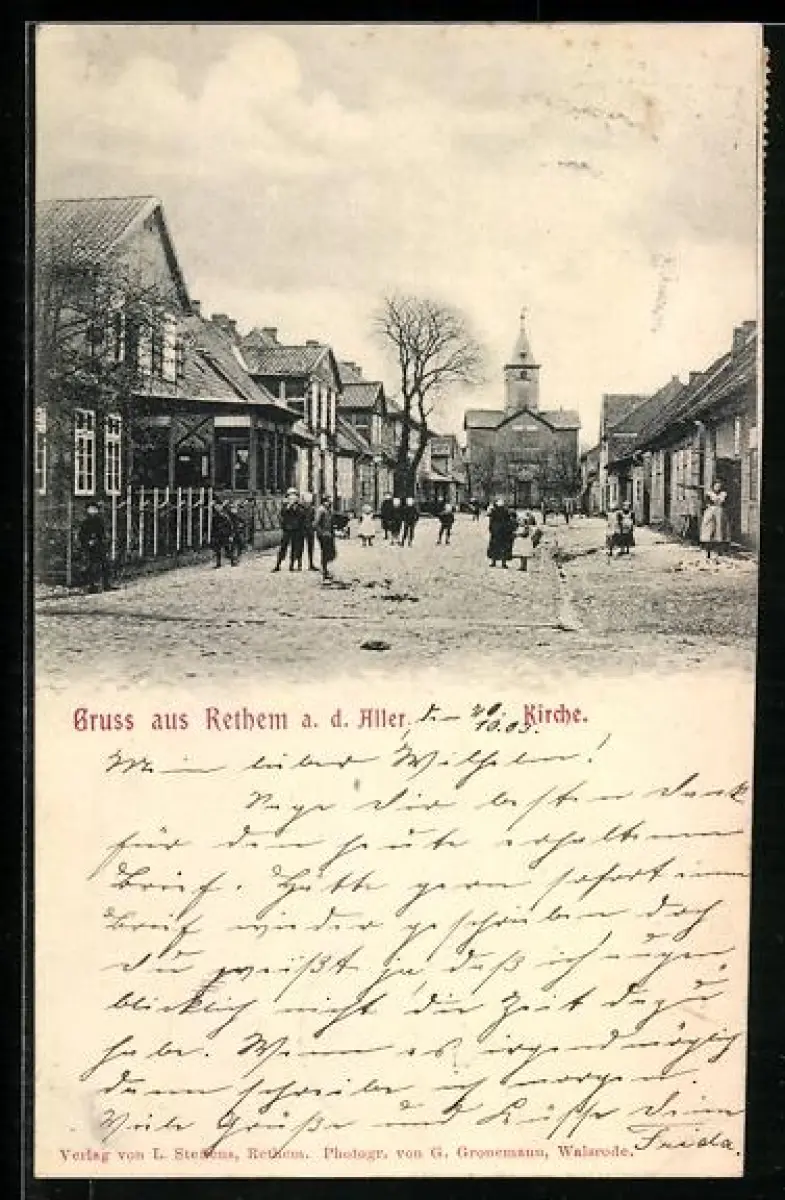 Gruss aus Rethem a. d. Aller. d. 20. 10.03. Kirche.
Mein lieber Wilhelm!
Sage Dir besten Dank
für den heute erhaltenen
Brief. Hätte gern sofort einen
Brief wieder geschrieben doch
Du weißt ja, daß ich augen
blicklich nicht die Zeit dazu
habe. Wenn es irgend möglich
dann schreibe ich morgen.
Viele Grüße und Küsse Deine
Frieda.
Verlag von L. Steffens, Rethem. Photogr. von G. Gronemann, Walsrode.